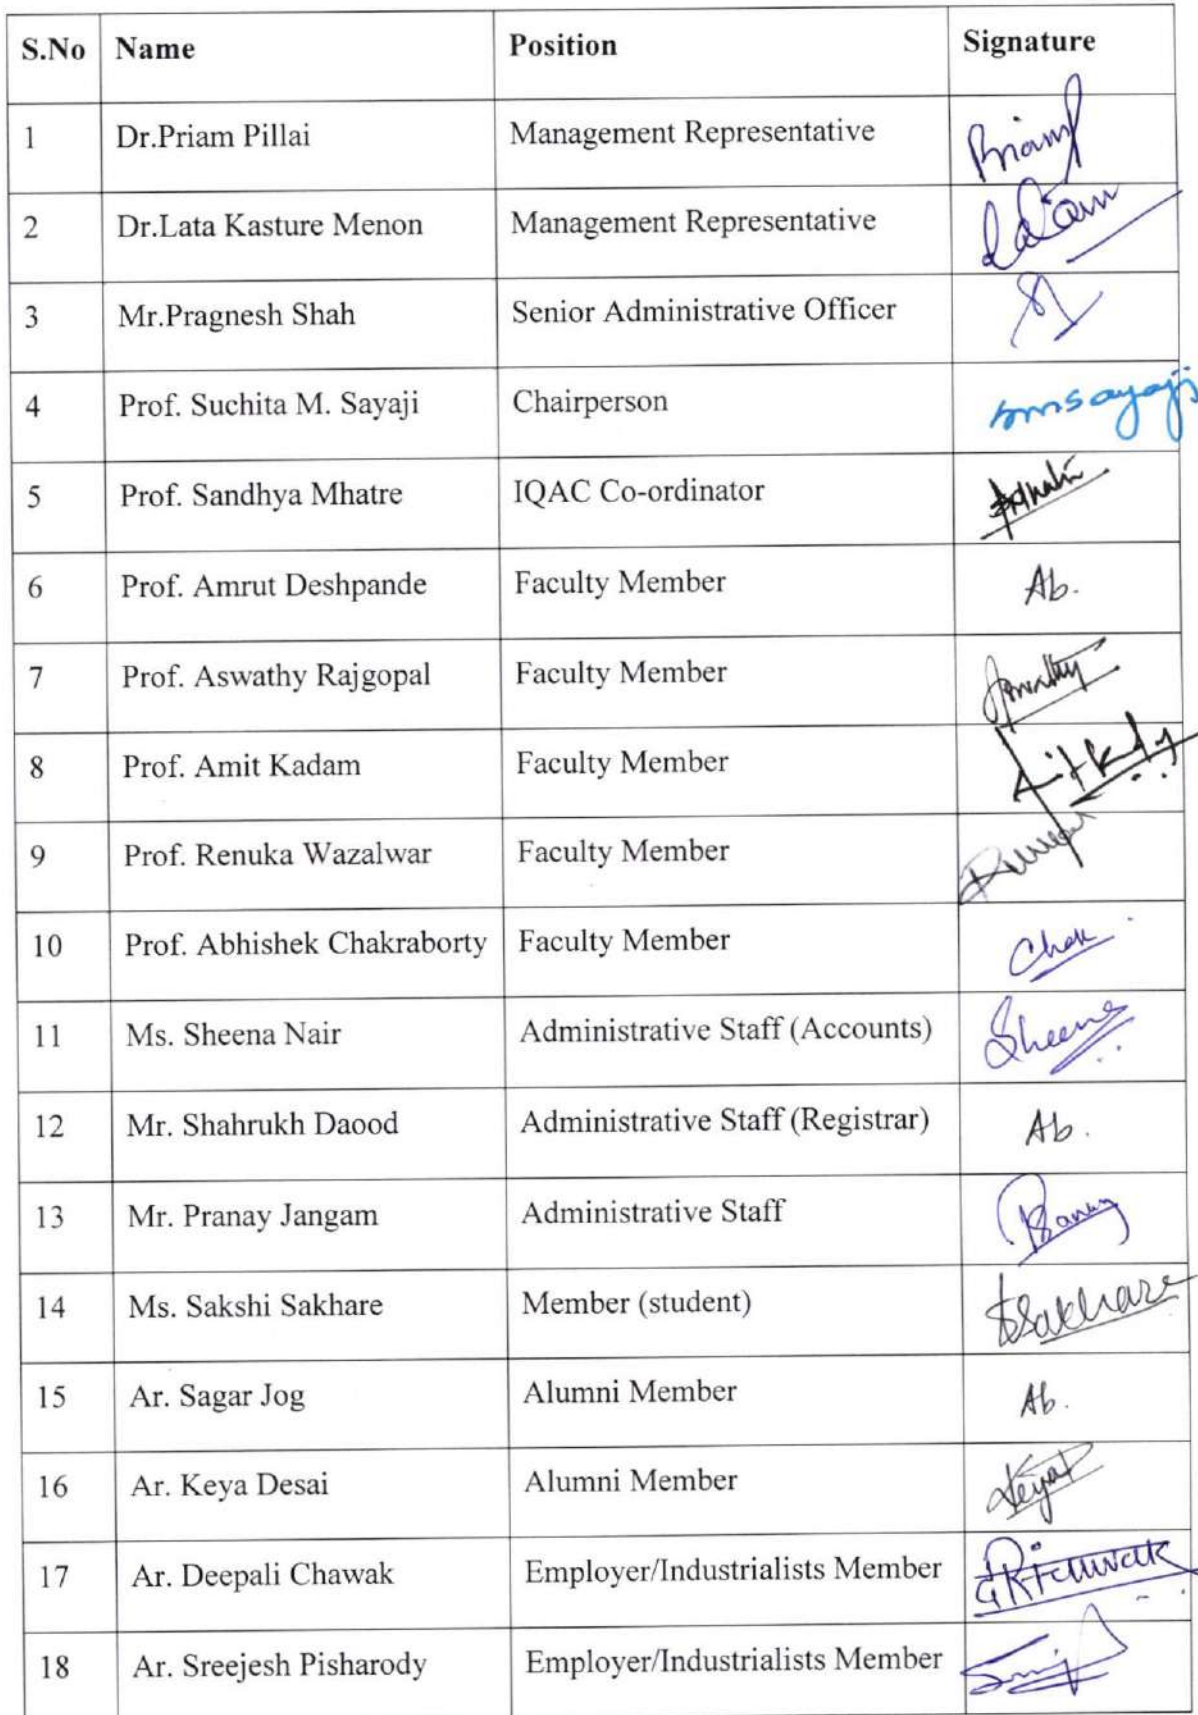 S.No Name Position Signature
1 Dr.Priam Pillai Management Representative Priam
2 Dr.Lata Kasture Menon Management Representative
3 Mr.Pragnesh Shah Senior Administrative Officer
4 Prof. Suchita M. Sayaji Chairperson smsayaji
5 Prof. Sandhya Mhatre IQAC Co-ordinator
6 Prof. Amrut Deshpande Faculty Member Ab.
7 Prof. Aswathy Rajgopal Faculty Member
8 Prof. Amit Kadam Faculty Member
9 Prof. Renuka Wazalwar Faculty Member
10 Prof. Abhishek Chakraborty Faculty Member Chak
11 Ms. Sheena Nair Administrative Staff (Accounts) Sheena
12 Mr. Shahrukh Daood Administrative Staff (Registrar) Ab.
13 Mr. Pranay Jangam Administrative Staff Pranay
14 Ms. Sakshi Sakhare Member (student) SSakhare
15 Ar. Sagar Jog Alumni Member Ab.
16 Ar. Keya Desai Alumni Member
17 Ar. Deepali Chawak Employer/Industrialists Member
18 Ar. Sreejesh Pisharody Employer/Industrialists Member